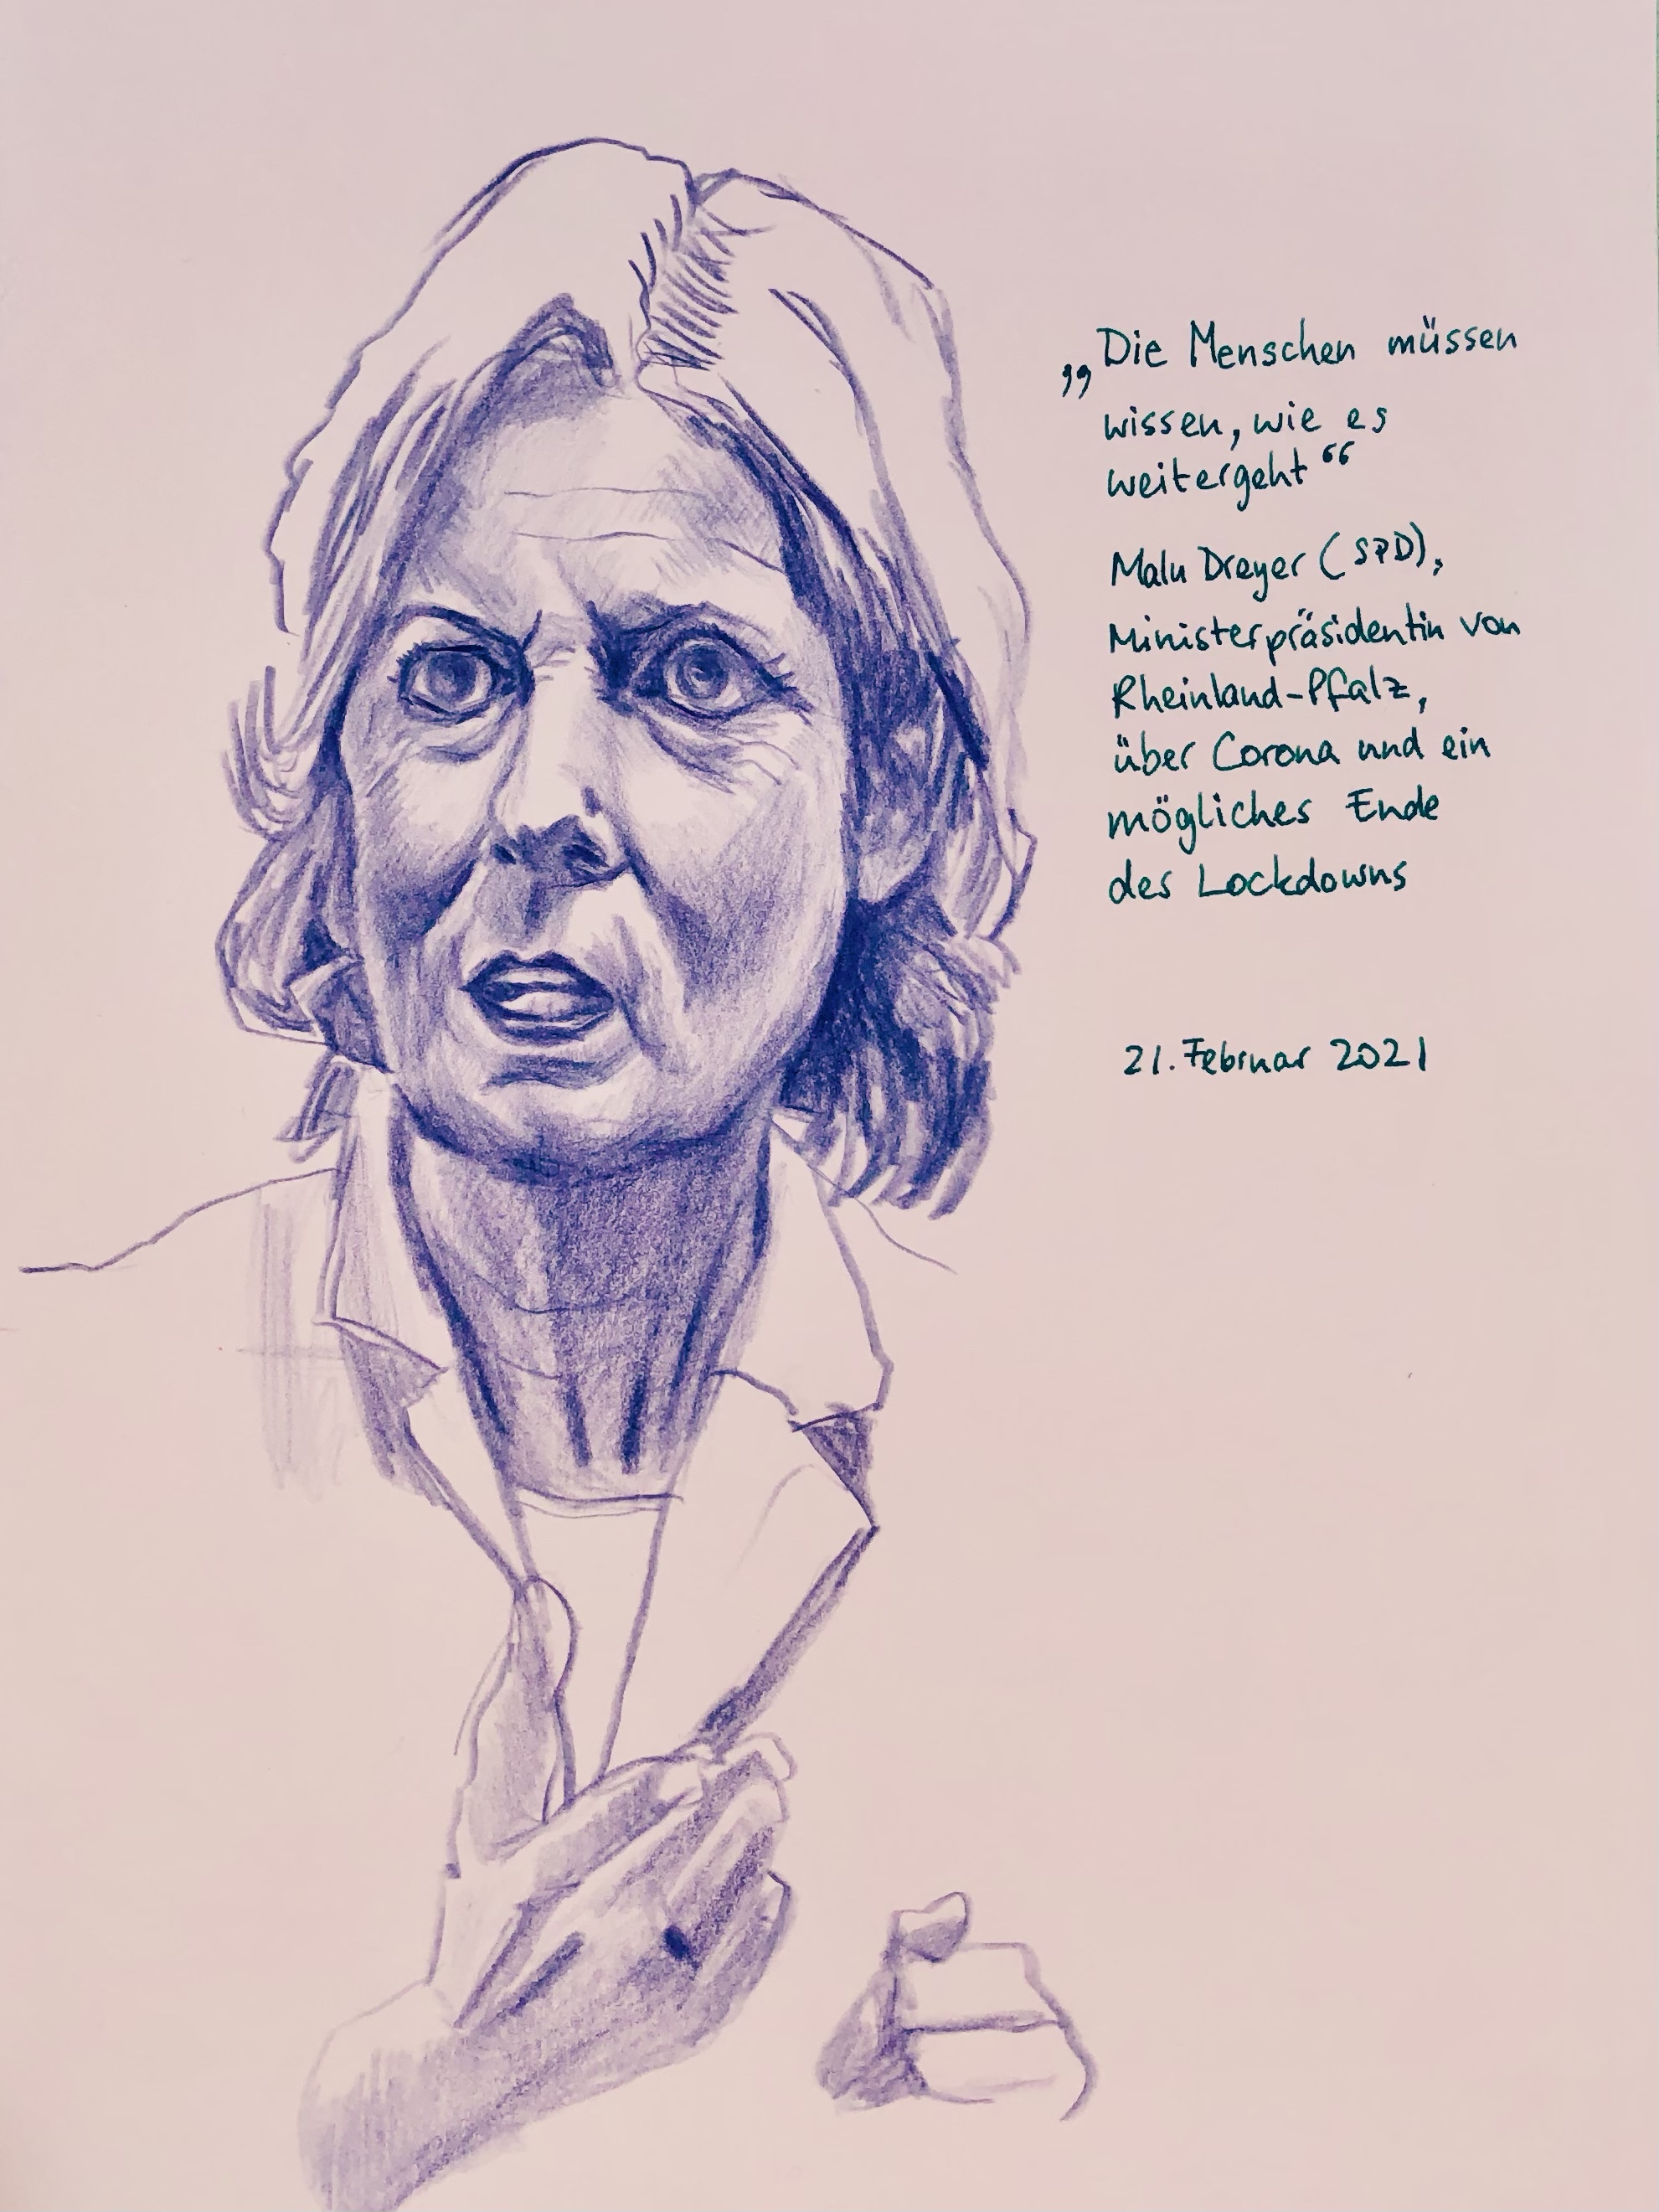 „Die Menschen müssen
wissen, wie es
weitergeht“
Malu Dreyer (SPD),
Ministerpräsidentin von
Rheinland-Pfalz,
über Corona und ein
mögliches Ende
des Lockdowns
21. Februar 2021